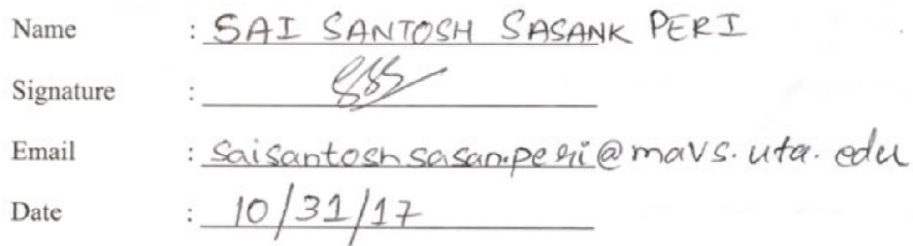 Name : SAI SANTOSH SASANK PERI
Signature :
Email : saisantoshsasan.peri@mavs.uta.edu
Date : 10/31/17